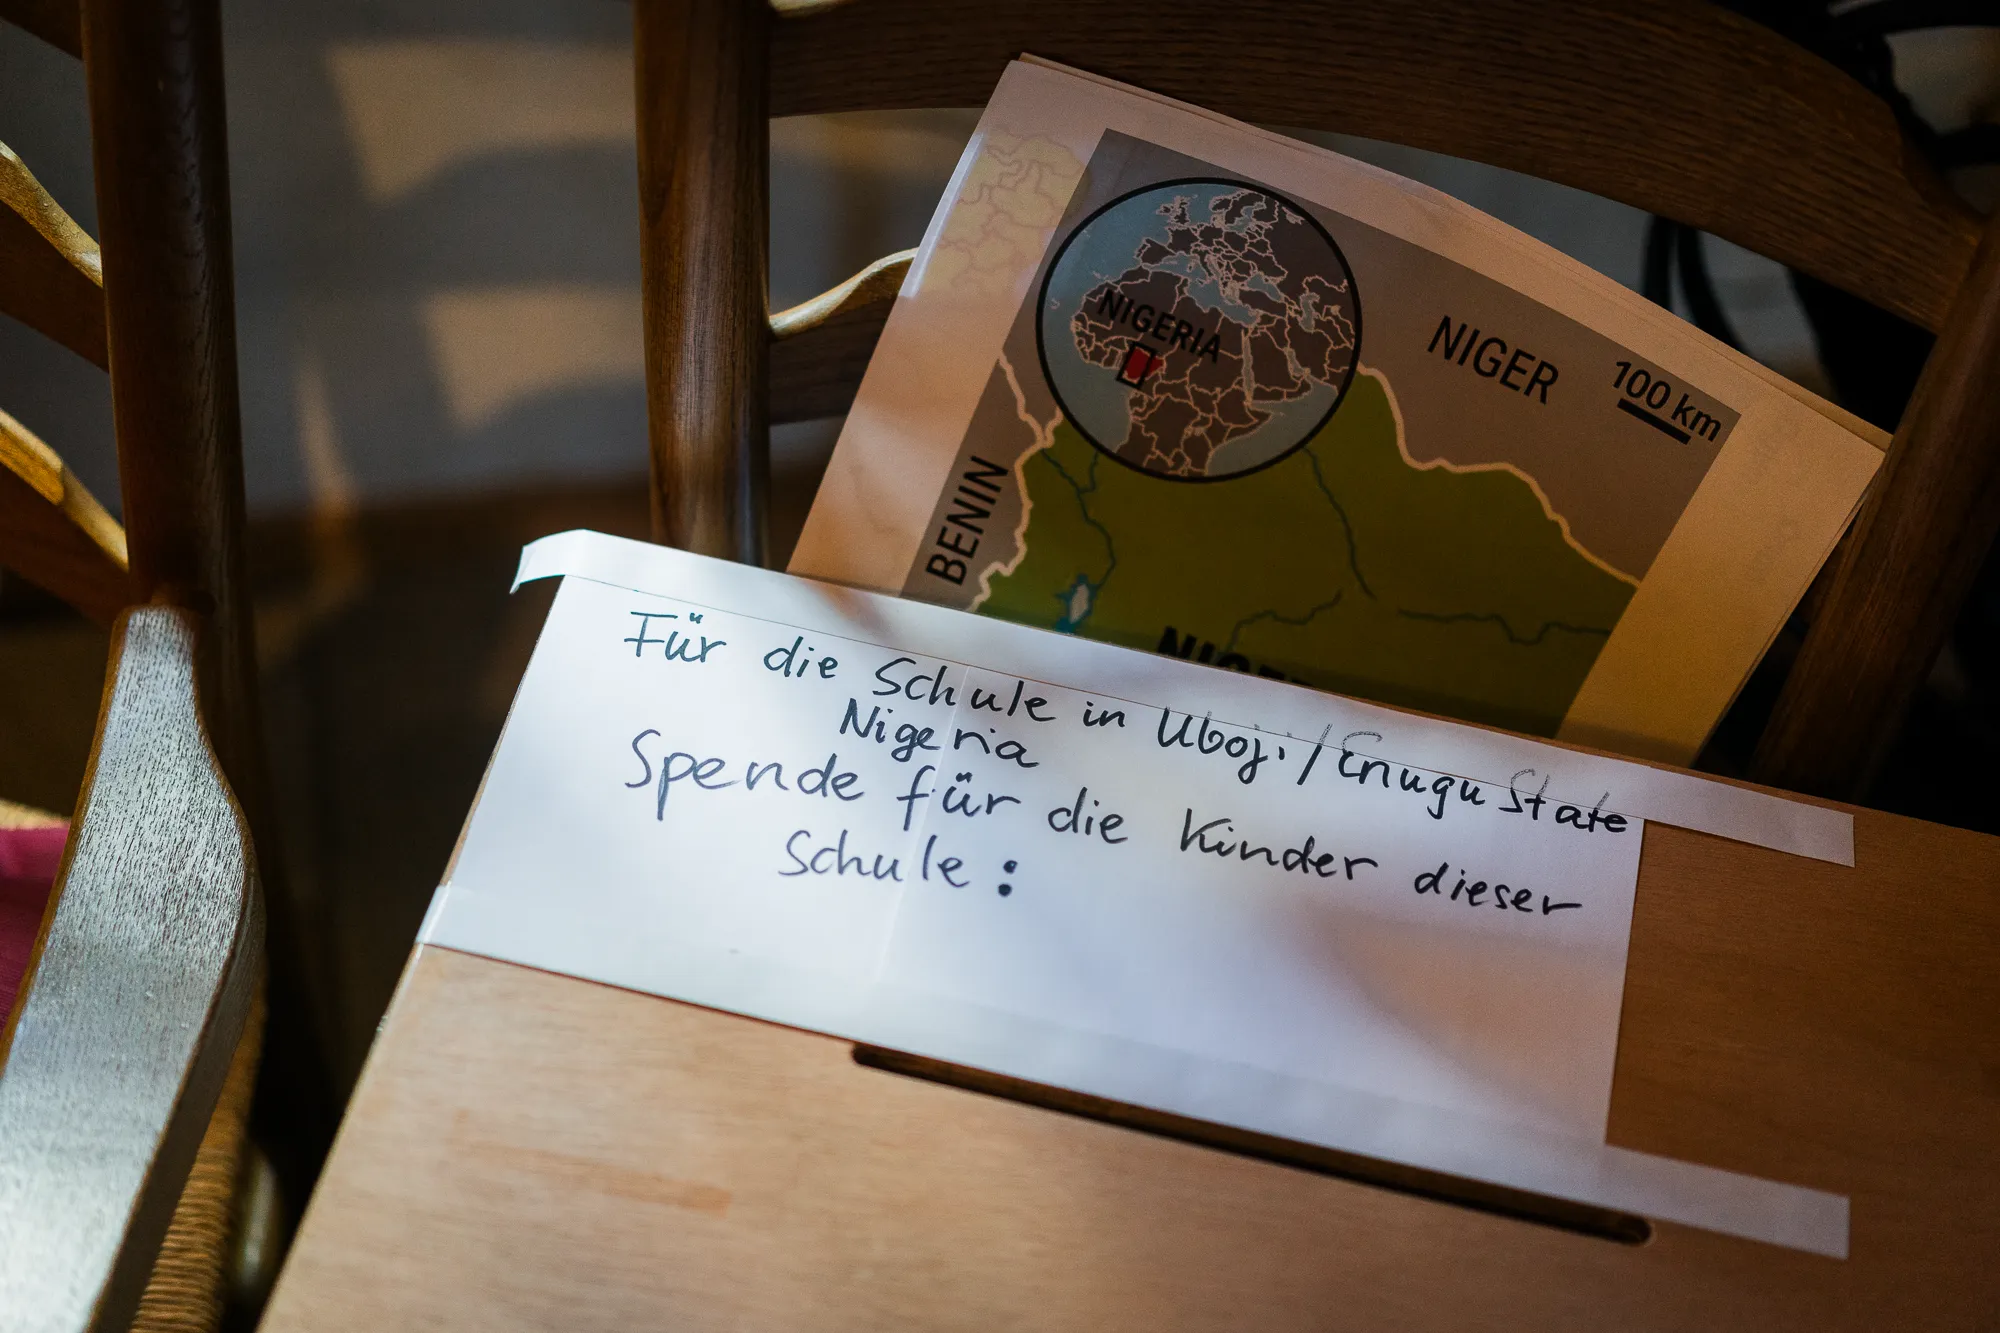 NIGERIA
NIGER
100 km
BENIN
Für die Schule in Uboji/Enugu State
Nigeria
Spende für die Kinder dieser
Schule: